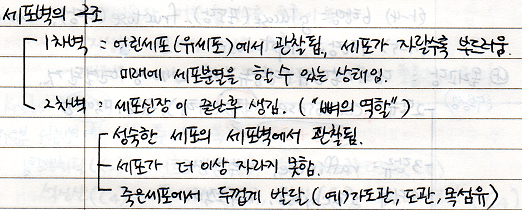 세포벽의 구조
1차벽 : 어린세포(유세포)에서 관찰됨, 세포가 자랄수록 부드러움.
미래에 세포분열을 할 수 있는 상태임.
2차벽 : 세포신장이 끝난후 생김. ("뼈의 역할")
성숙한 세포의 세포벽에서 관찰됨.
세포가 더 이상 자라지 못함.
죽은세포에서 두껍게 발달 (예)가도관, 도관, 목섬유)